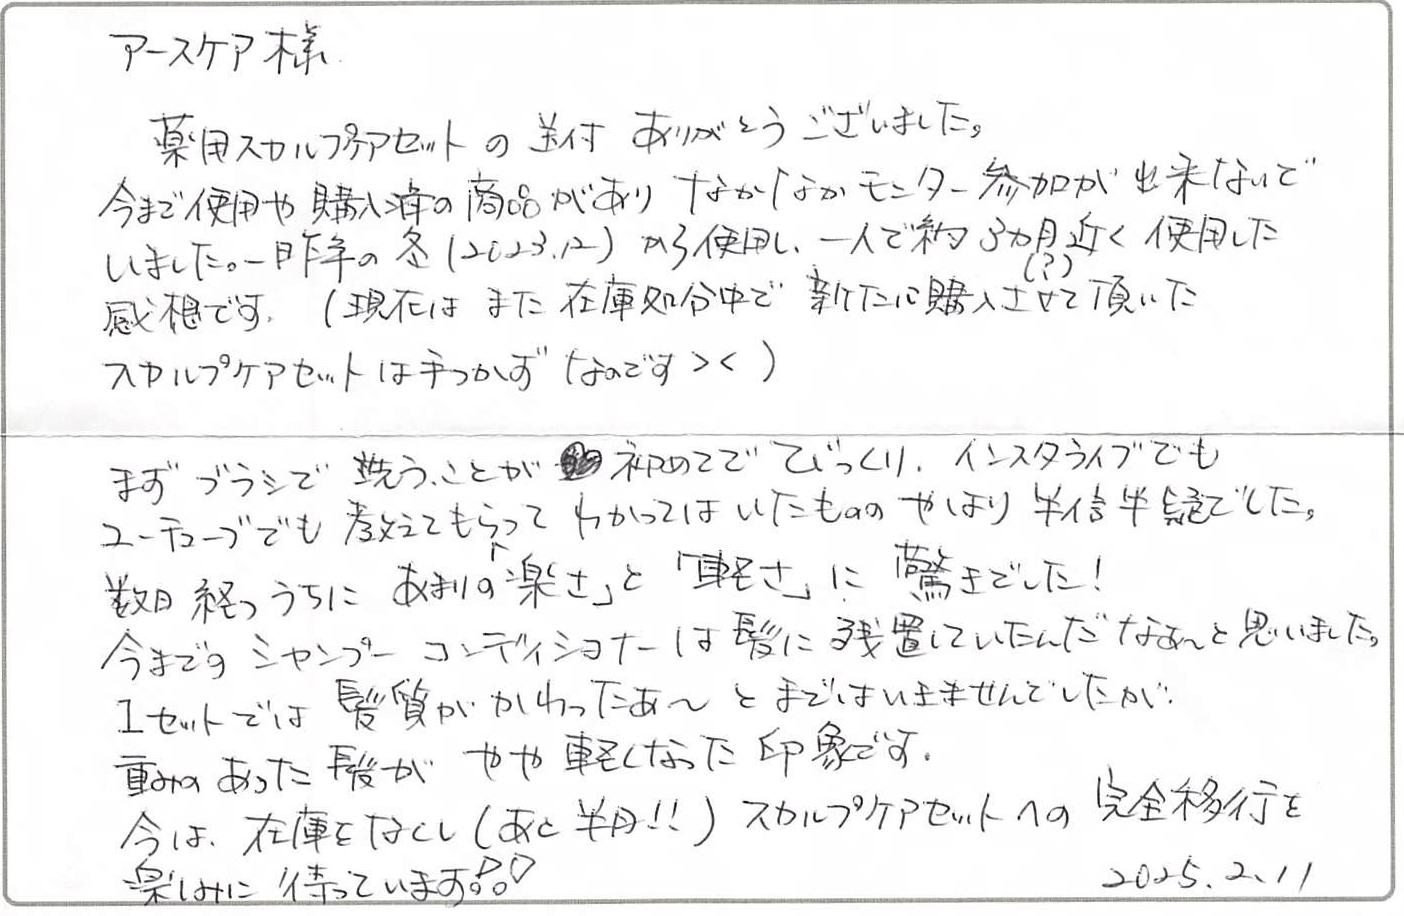 アースケア様
薬用スカルプケアセットの送付 ありがとうございました。
今まで使用や購入済の商品があり なかなかモニター参加が出来ないで
いました。一昨年の冬(2023.12)から使用し、一人で約3カ月近く使用した
(?)
感想です。(現在は また 在庫処分中で 新たに購入させて頂いた
スカルプケアセットは手つかずなのです＞＜)
まず ブラシで 洗うことが 初めてで びっくり。インスタライブでも
ユーチューブでも 教えてもらって わかってはいたものの やはり 半信半疑でした。
数日 経つうちに あまりの「楽さ」と「軽さ」に 驚きでした!
今までの シャンプー コンディショナーは 髪に 残置していたんだなぁ〜と思いました。
1セットでは 髪質が かわったぁ〜 とまではいきませんでしたが、
重みのあった髪が やや 軽くなった 印象です。
今は、在庫をなくし(あと半月!!) スカルプケアセットへの 完全移行を
楽しみに 待っています!!♡
2025.2.11